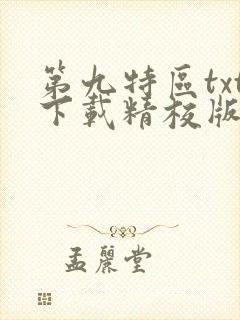 第九特區txt
下載精校版
孟麗堂